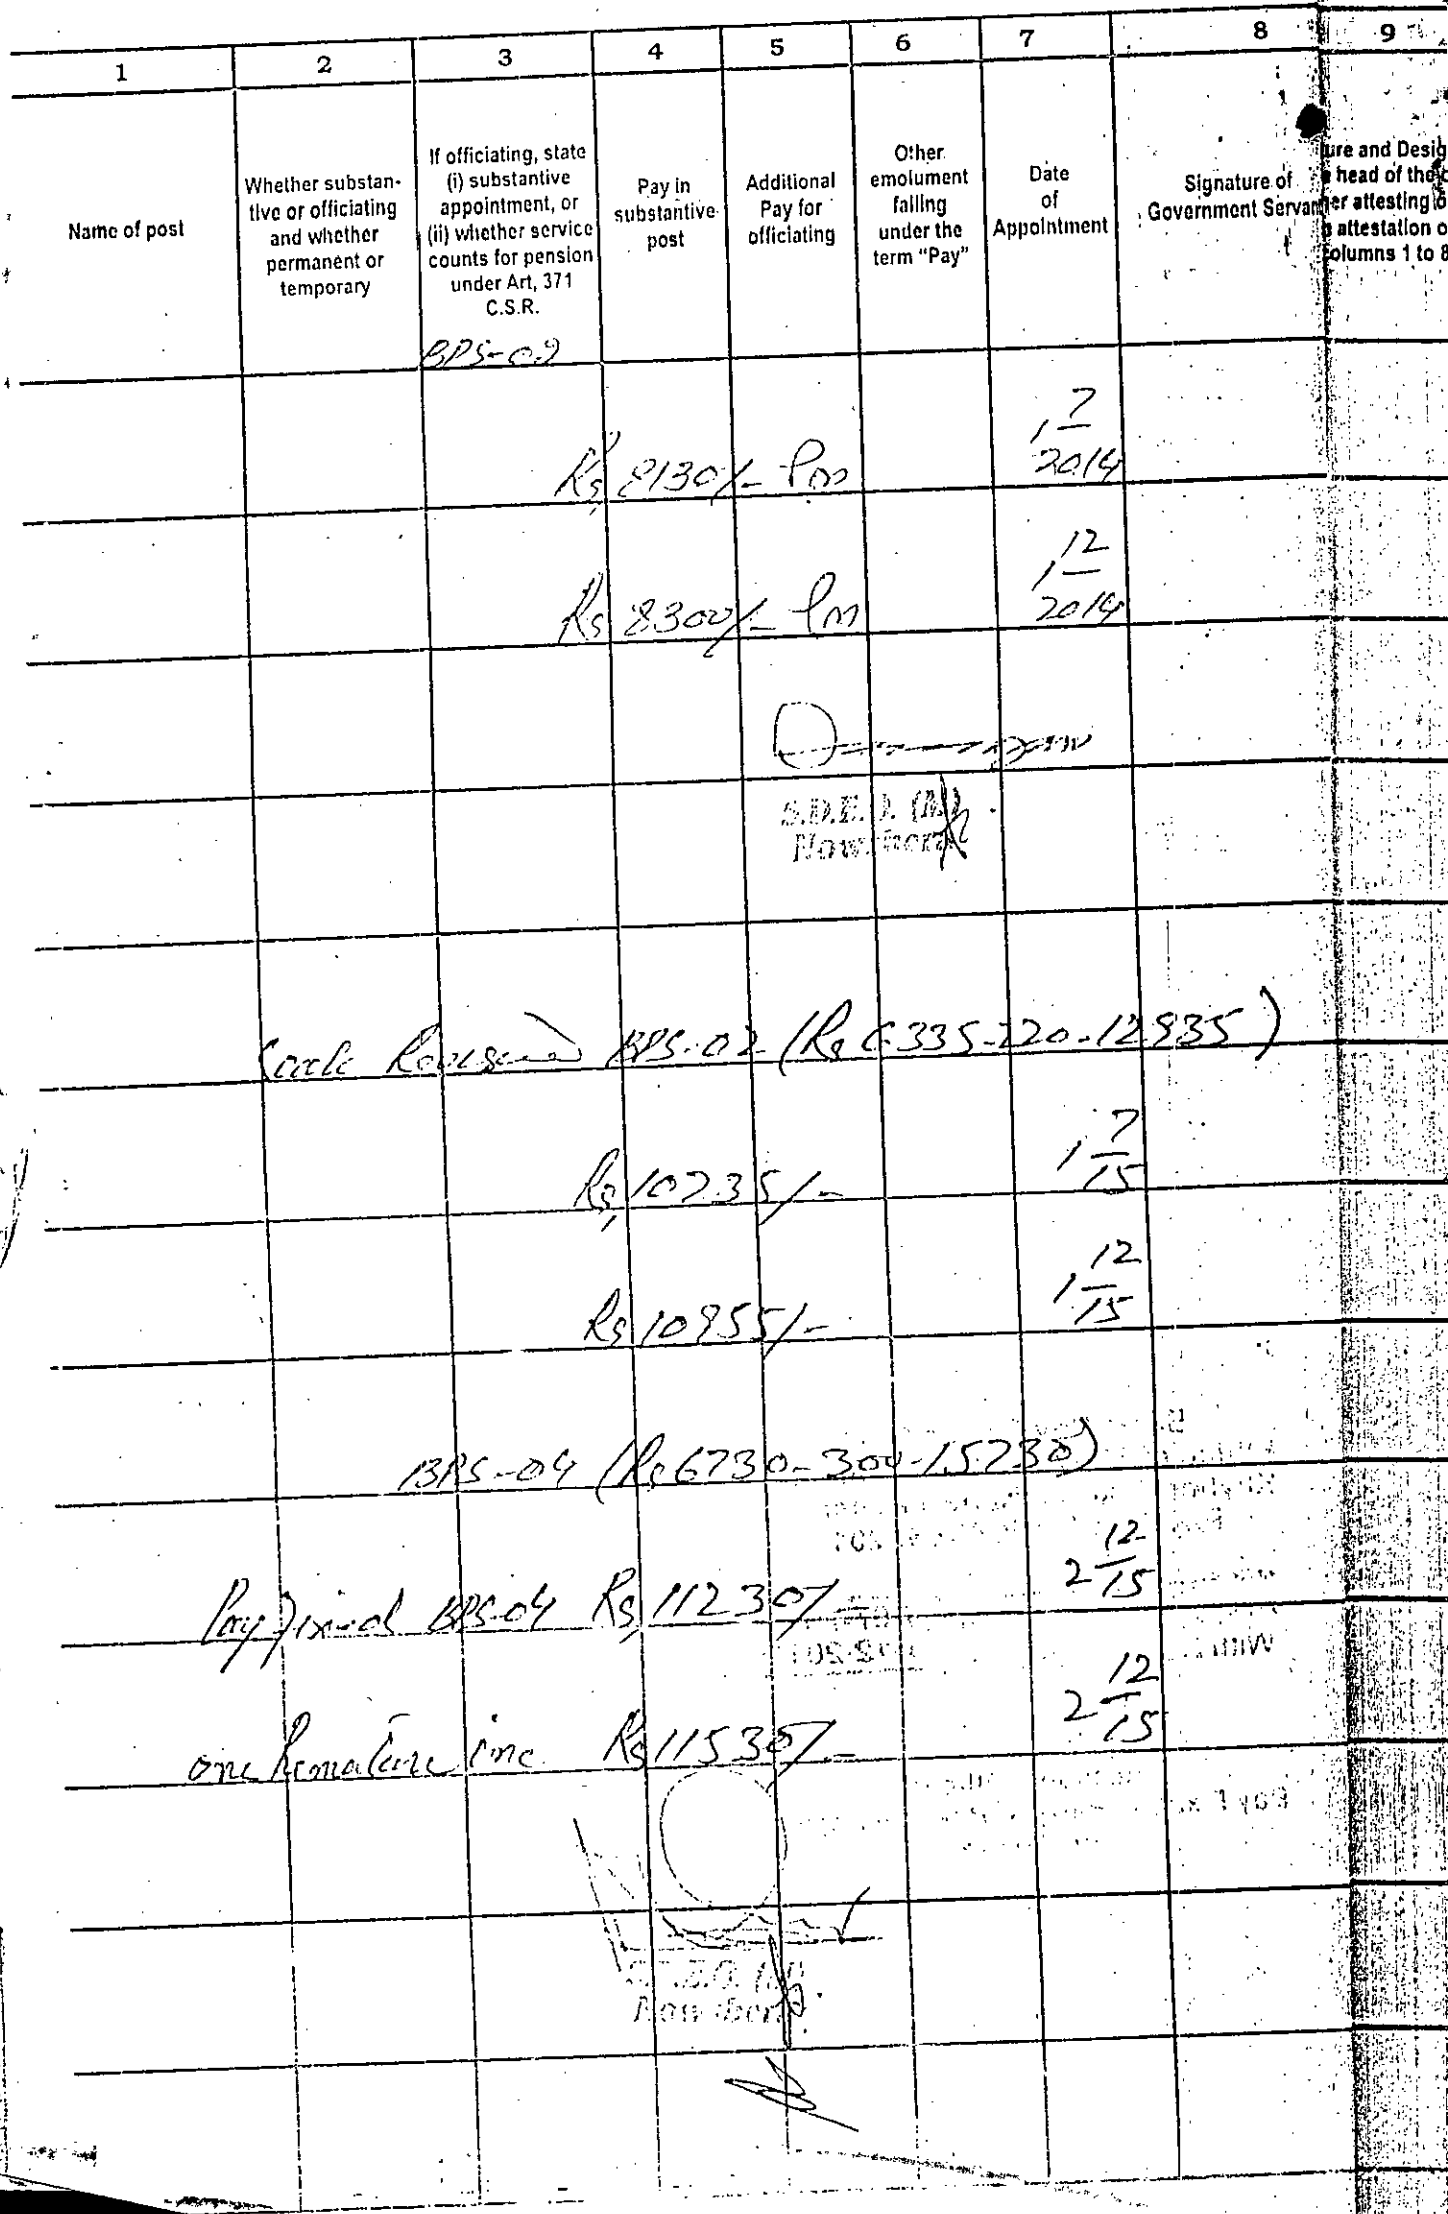 1 2 3 4 5 6 7 8 9
Name of post
Whether substan-
tive or officiating
and whether
permanent or
temporary
If officiating, state
(i) substantive
appointment, or
(ii) whether service
counts for pension
under Art, 371
C.S.R.
Pay in
substantive
post
Additional
Pay for
officiating
Other
emolument
falling
under the
term "Pay"
Date
of
Appointment
Signature of
Government Servant
ure and Desig
head of the
er attesting
attestation o
olumns 1 to 8
BPS-02
Rs 8130/- Pm 1 7/2014
Rs 8300/- Pm 1 12/2014
S.D.E.O. (M)
Nowshera
Scale Revised BPS-02 (Rs 6335-220-12935)
Rs 10735/- 1 7/15
Rs 10955/- 1 12/15
BPS-04 (Rs 6730-300-15730)
Pay fixed BPS-04 Rs 11230/- 2 12/15
one Premature inc Rs 11530/- 2 12/15
S.D.E.O. (M)
Nowshera